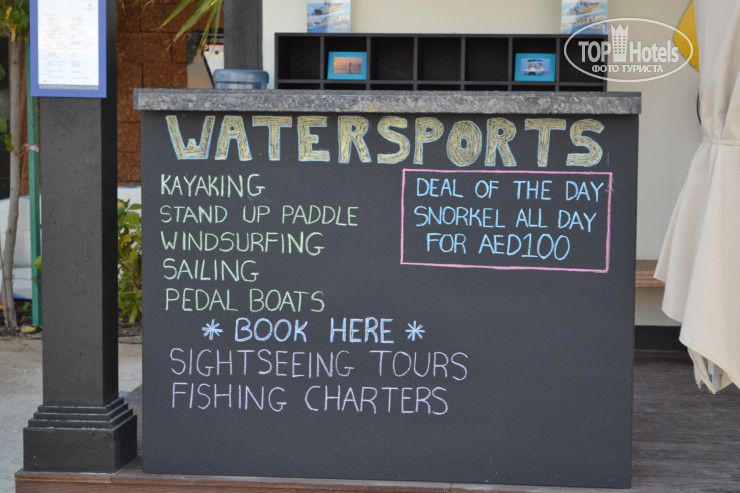 WATERSPORTS
KAYAKING
STAND UP PADDLE
WINDSURFING
SAILING
PEDAL BOATS
* BOOK HERE *
SIGHTSEEING TOURS
FISHING CHARTERS
DEAL OF THE DAY
SNORKEL ALL DAY
FOR AED100
TOP Hotels
ФОТО ТУРИСТА